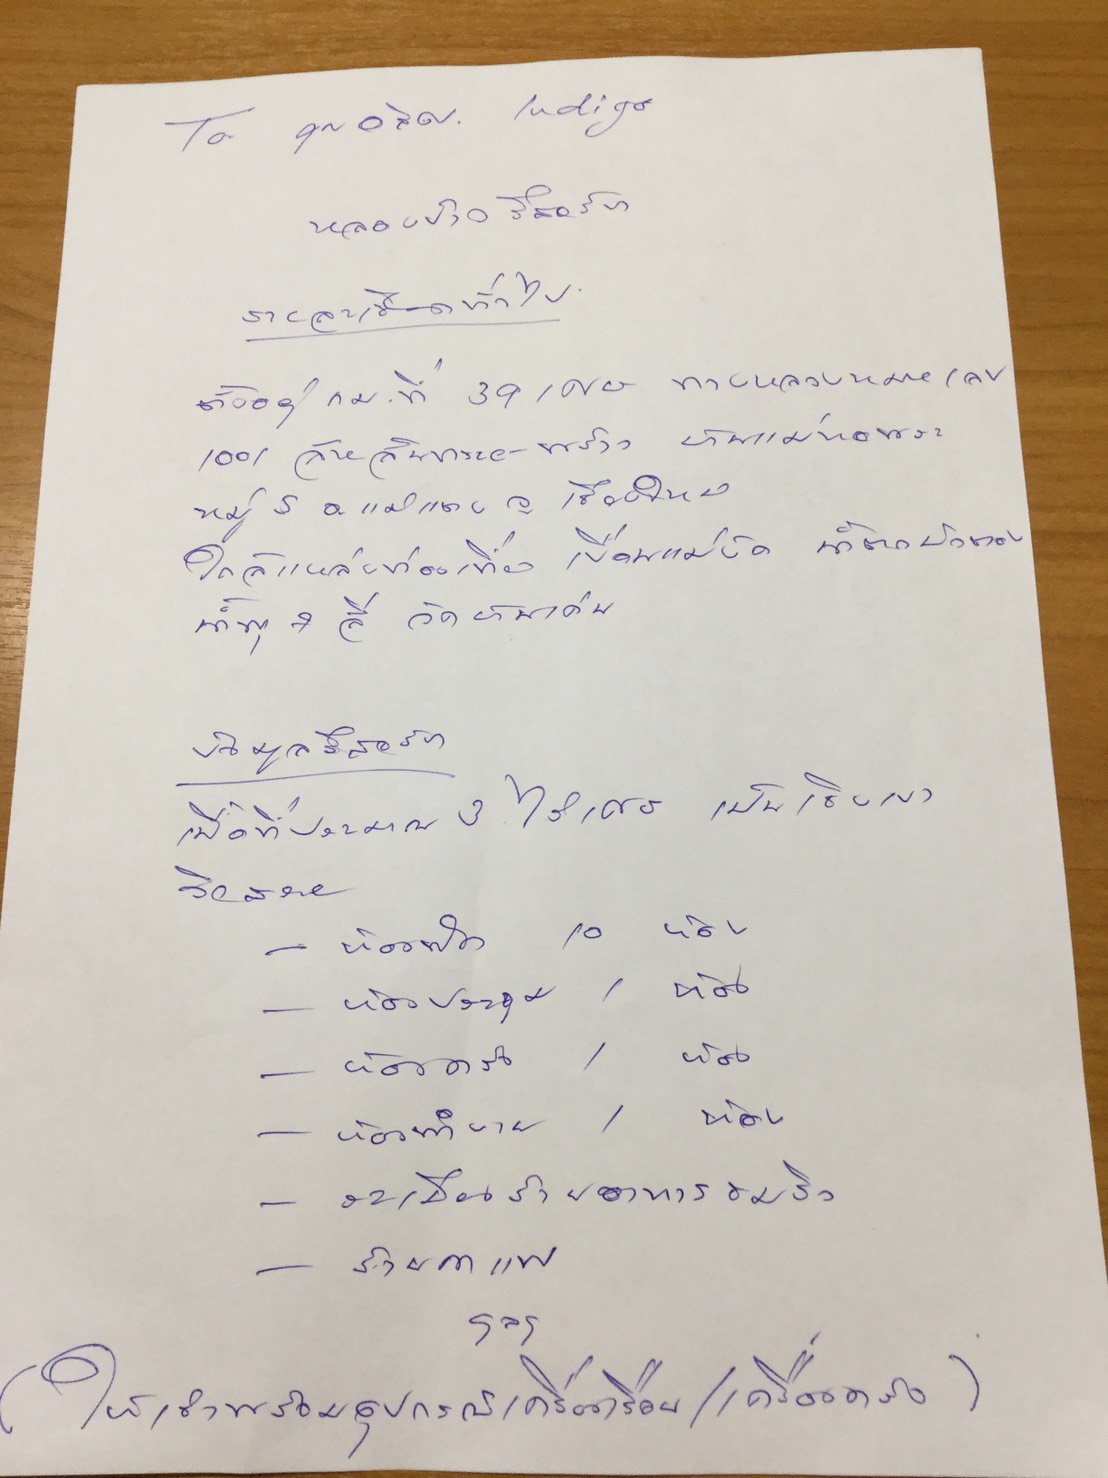 To คุณอดิศ. Indigo
หลองข้าว รีสอร์ท
รายละเอียดทั่วไป.
ตั้งอยู่ กม.ที่ 39 เศษ ทางหลวงหมายเลข
1001 สายสันทราย-พร้าว บ้านแม่หอพระ
หมู่ 5 อ.แม่แตง จ. เชียงใหม่
ใกล้แหล่งท่องเที่ยว เขื่อนแม่งัด น้ำตกบัวตอง
น้ำพุ 7 สี วัดบ้านเด่น
ข้อมูลรีสอร์ท
เนื้อที่ประมาณ 3 ไร่เศษ เป็นเชิงเขา
อิสระ
- ห้องพัก 10 ห้อง
- ห้องประชุม 1 ห้อง
- ห้องครัว 1 ห้อง
- ห้องทำงาน 1 ห้อง
- ระเบียงร้านอาหารชมวิว
- ร้านกาแฟ
ฯลฯ
(ให้เช่าพร้อมอุปกรณ์เครื่องเรือน/เครื่องครัว)